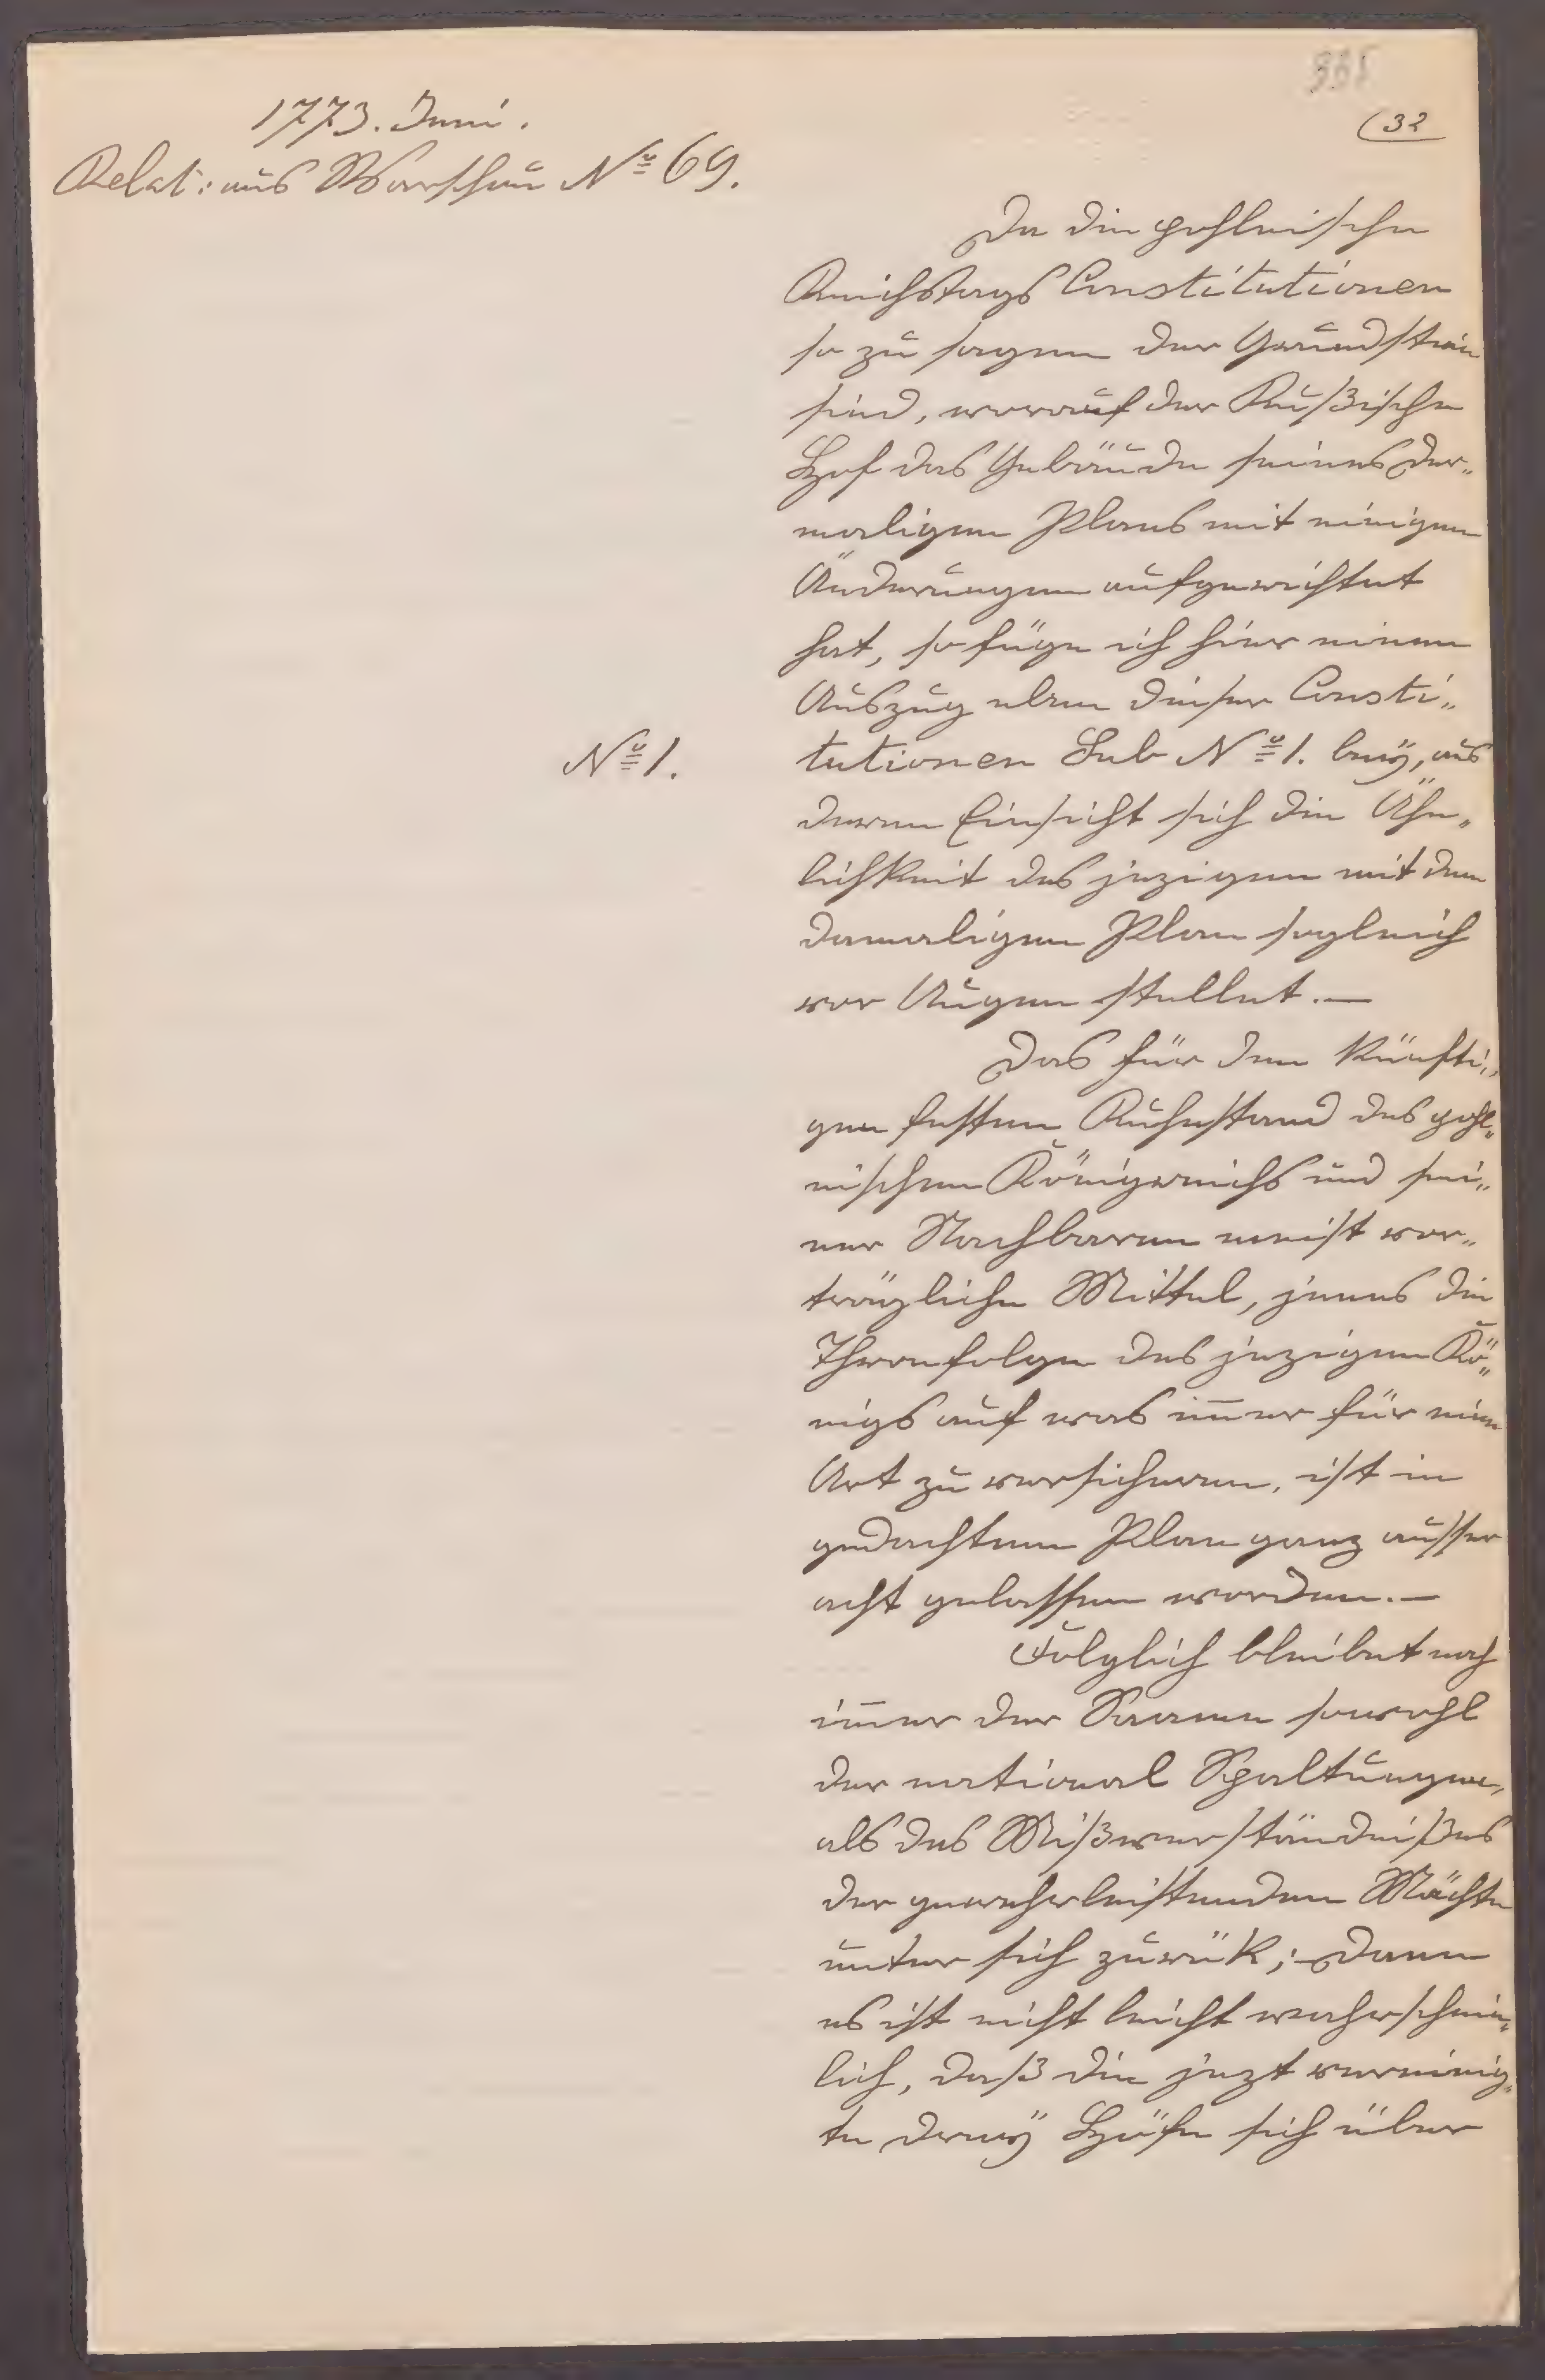 (32
1773. Juni.
Relat: aus Warschau No 69.
Da die pohlnische
Reichstags Constitutionen
so zu sagen der Grundstein
sind, worauf der Rußische
Hof das Gebäude seines der„
maligen Plans mit einigen
Änderungen aufgerichtet
hat, so füge ich hier einen
Auszug eben dieser Consti„
No 1.
tutionen Sub No 1. bey, aus
deren Einsicht sich die Ähn„
lichkeit des jezigen mit dem
damaligen Plan sogleich
vor Augen stellet.—
Das für den künfti„
gen festen Ruhestand des pohl„
nischen Königreichs und sei„
ner Nachbaren meist vor„
trägliche Mittel, jenes die
Thronfolge des jezigen Kö„
nigs auf was im̅er für eine
Art zu versicheren, ist in
gedachtem Plan ganz ausser
acht gelassen worden.—
Folglich bleibet noch
im̅er der Saamen sowohl
der national Spaltungen,
als des Mißverständnißes
der gewehrleistenden Mächte
unter sich zurük; dann
es ist nicht leicht wahrschein„
lich, daß die jezt vereinig„
te drey Höfe sich über